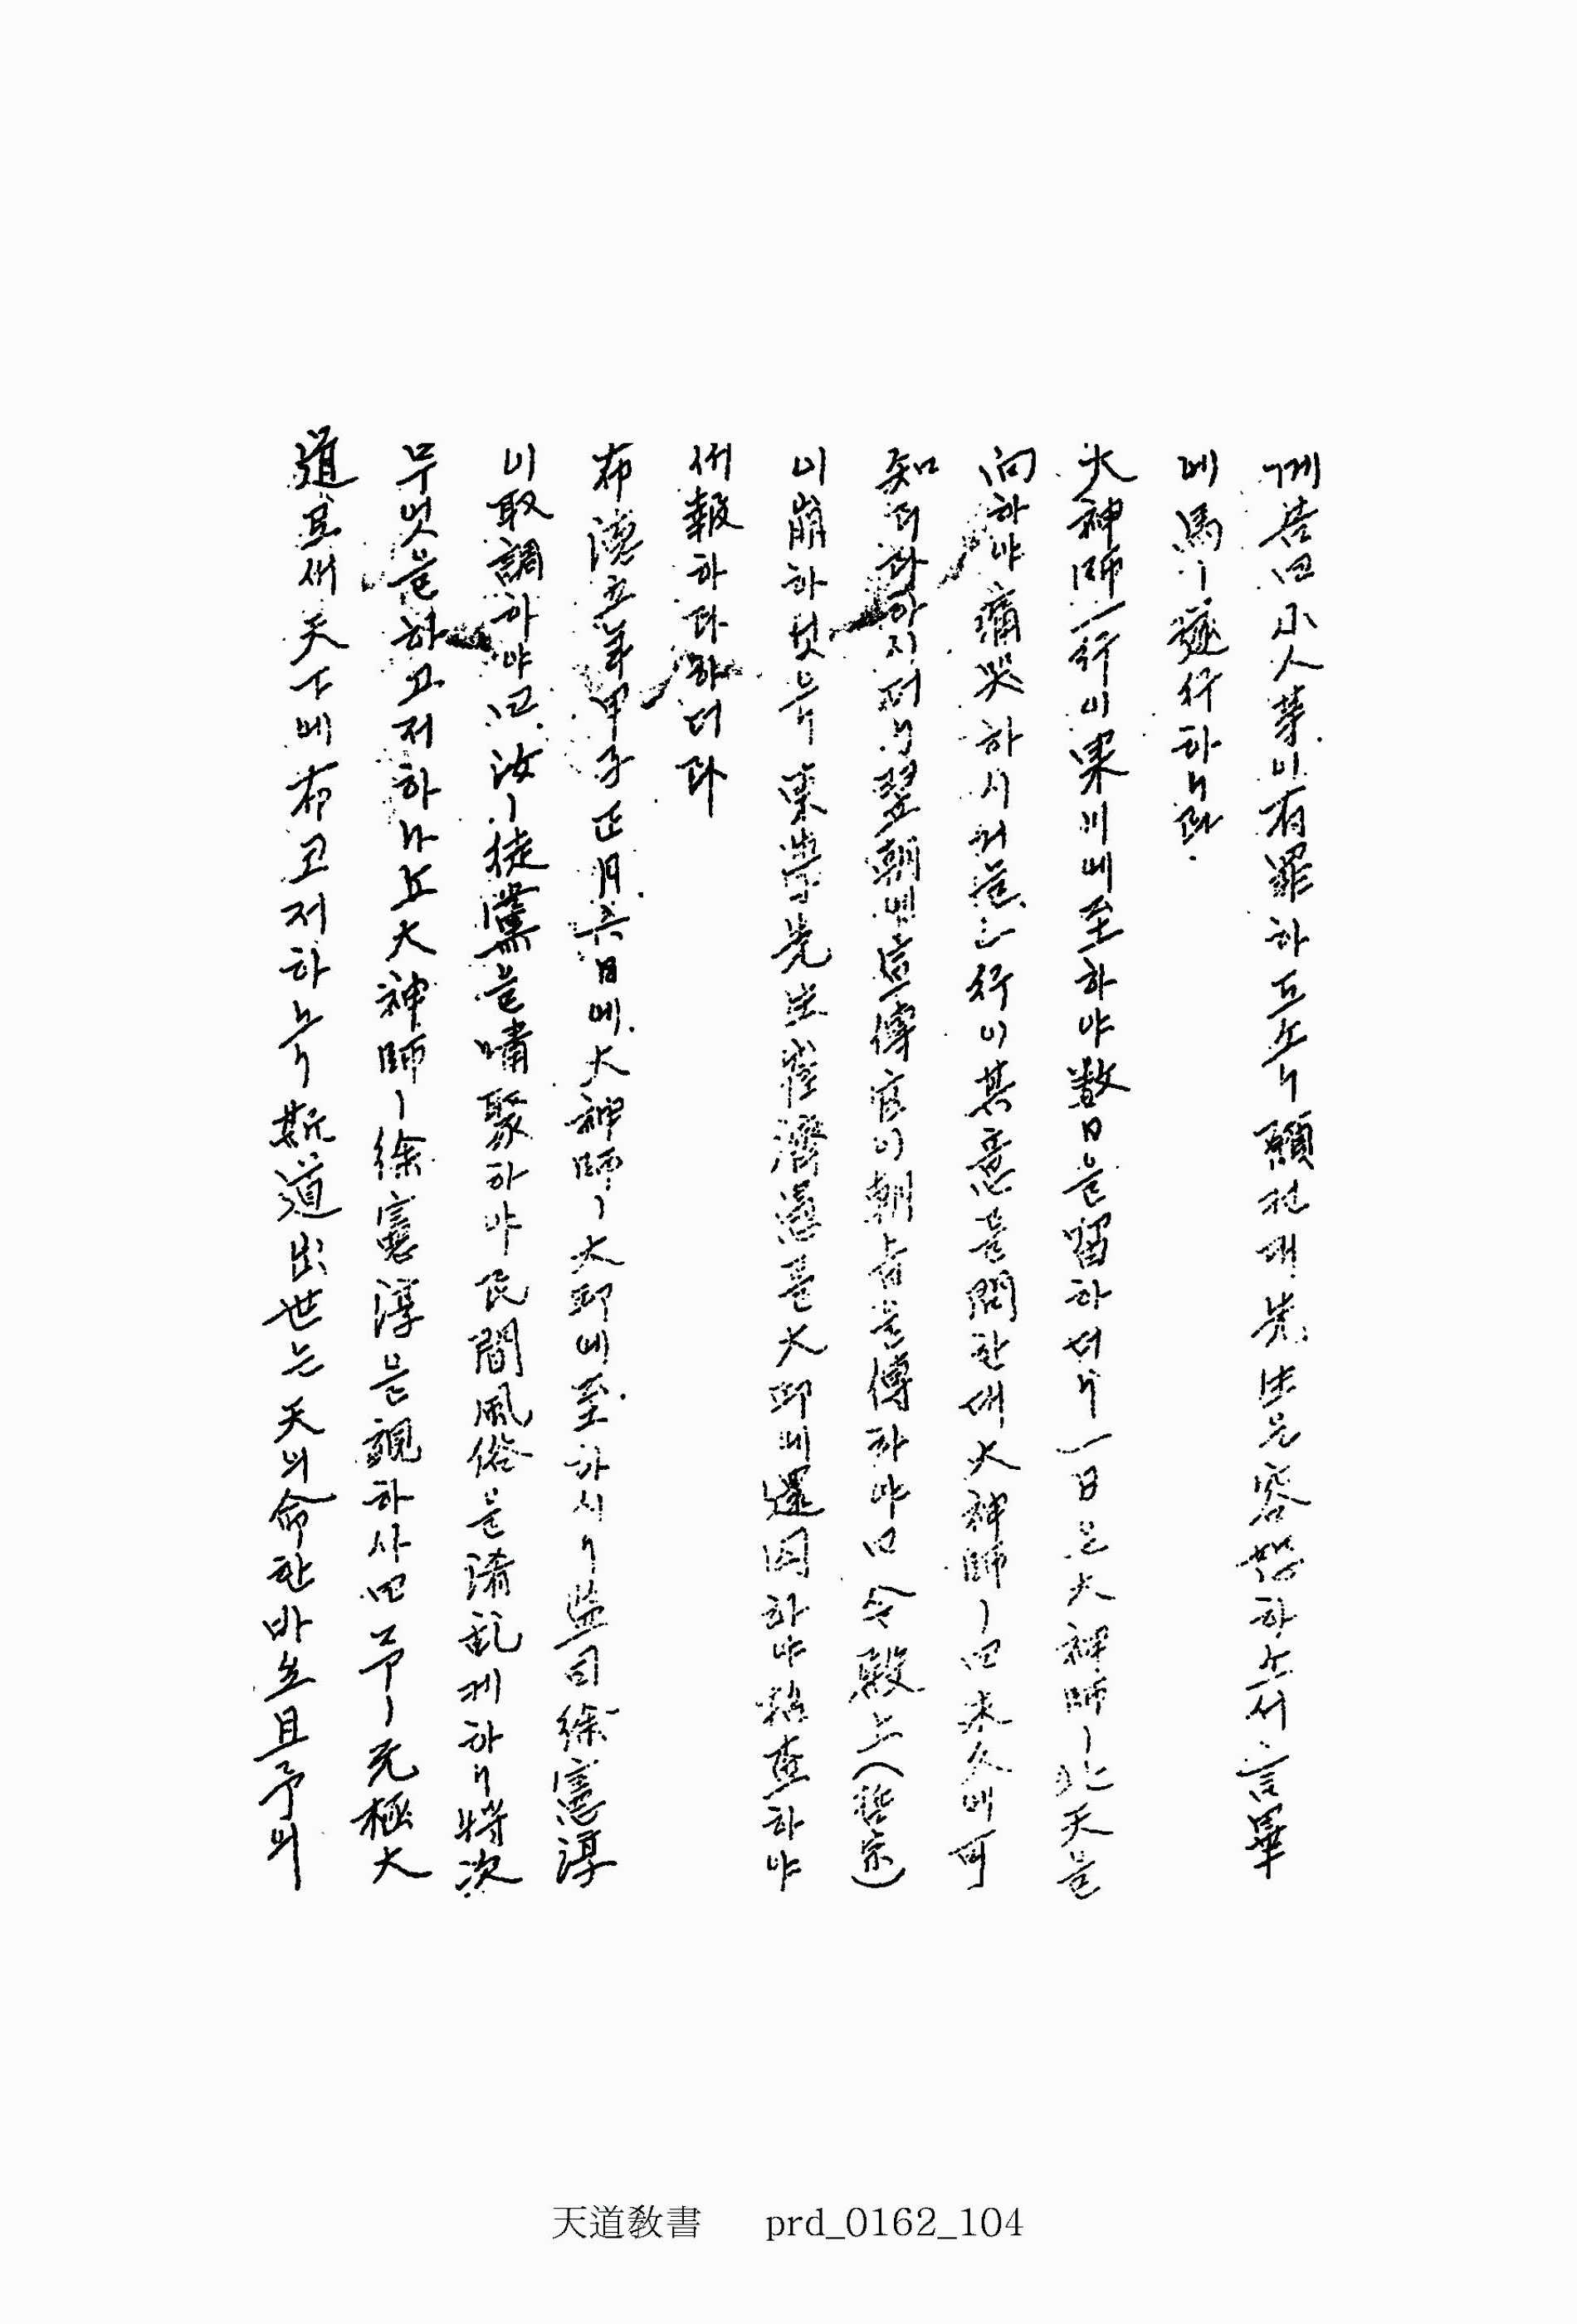 께 告曰 小人等이 有罪하도소니 願컨대 先生은 容恕하소서 言畢
에 馬ㅣ 發行하니라
大神師 一行이 果川에 至하야 數日을 留하더니 一日은 大神師ㅣ 北天을
向하야 痛哭하시거늘 一行이 其意를 問한대 大神師ㅣ 曰 未久에 可
知리라 하시더니 翌朝에 宣傳官이 朝旨를 傳하야 曰 今 殿上(哲宗)
이 崩하셧으니 東學先生 崔濟愚를 大邱에 還囚하야 招査하야
써 報하라 하더라
布德五年甲子正月六日에 大神師ㅣ 大邱에 至하시니 監司 徐憲淳
이 取調하야 曰 汝ㅣ 徒黨을 嘯聚하야 民間風俗을 淆亂케 하니 將次
무엇을 하고저 하나뇨 大神師ㅣ 徐憲淳을 觀하사 曰 予ㅣ 无極大
道로써 天下에 布고저 하노니 斯道出世는 天의 命한 바오 且予의
天道敎書 prd_0162_104